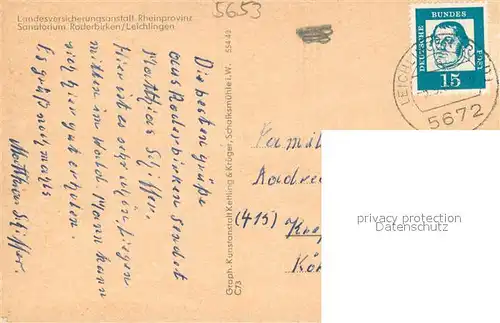 Landesversicherungsanstalt Rheinprovinz
Sanatorium Roderbirken/Leichlingen
5653
Die besten Grüße
aus Roderbirken sendet
Matthias Schiffer.
Hier ist es sehr schön liegen
mitten im Wald. Mann kann
sich hier gut erholen.
Es grüßt nochmals
Matthias Schiffer.
554 43
Graph. Kunstanstalt Kettling & Krüger, Schalksmühle i. W.
C73
DEUTSCHE BUNDESPOST
15
5672
Famil
Andre
(415)
privacy protection
Datenschutz